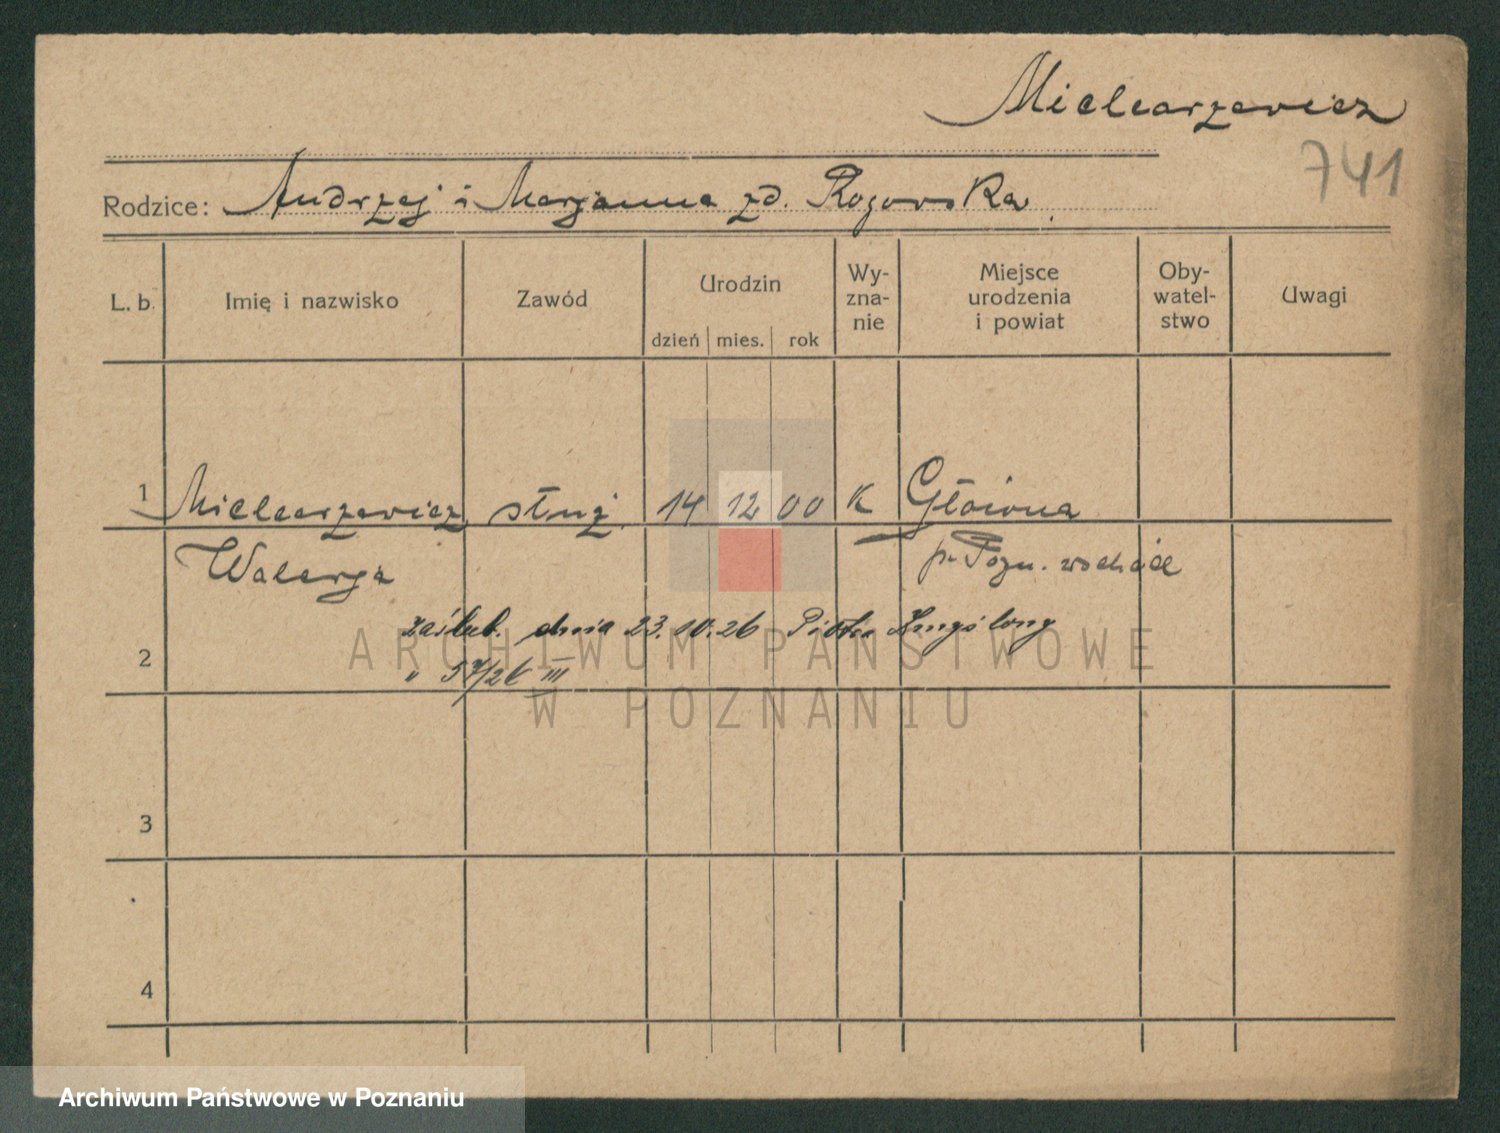 Mielcarzewicz
741
Rodzice: Andrzej i Marjanna zd. Rogowska.
L. b. Imię i nazwisko Zawód Urodzin dzień mies. rok Wy-zna-nie Miejsce urodzenia i powiat Oby-watel-stwo Uwagi
1 Mielcarzewicz służ. 14 12 00 K Główna
Walerja p. Pozn. wschód
zaślub. dnia 23.10.26 Piotra Zmyślony
2 " 57/26 III
ARCHIWUM PAŃSTWOWE
W POZNANIU
3
4
Archiwum Państwowe w Poznaniu